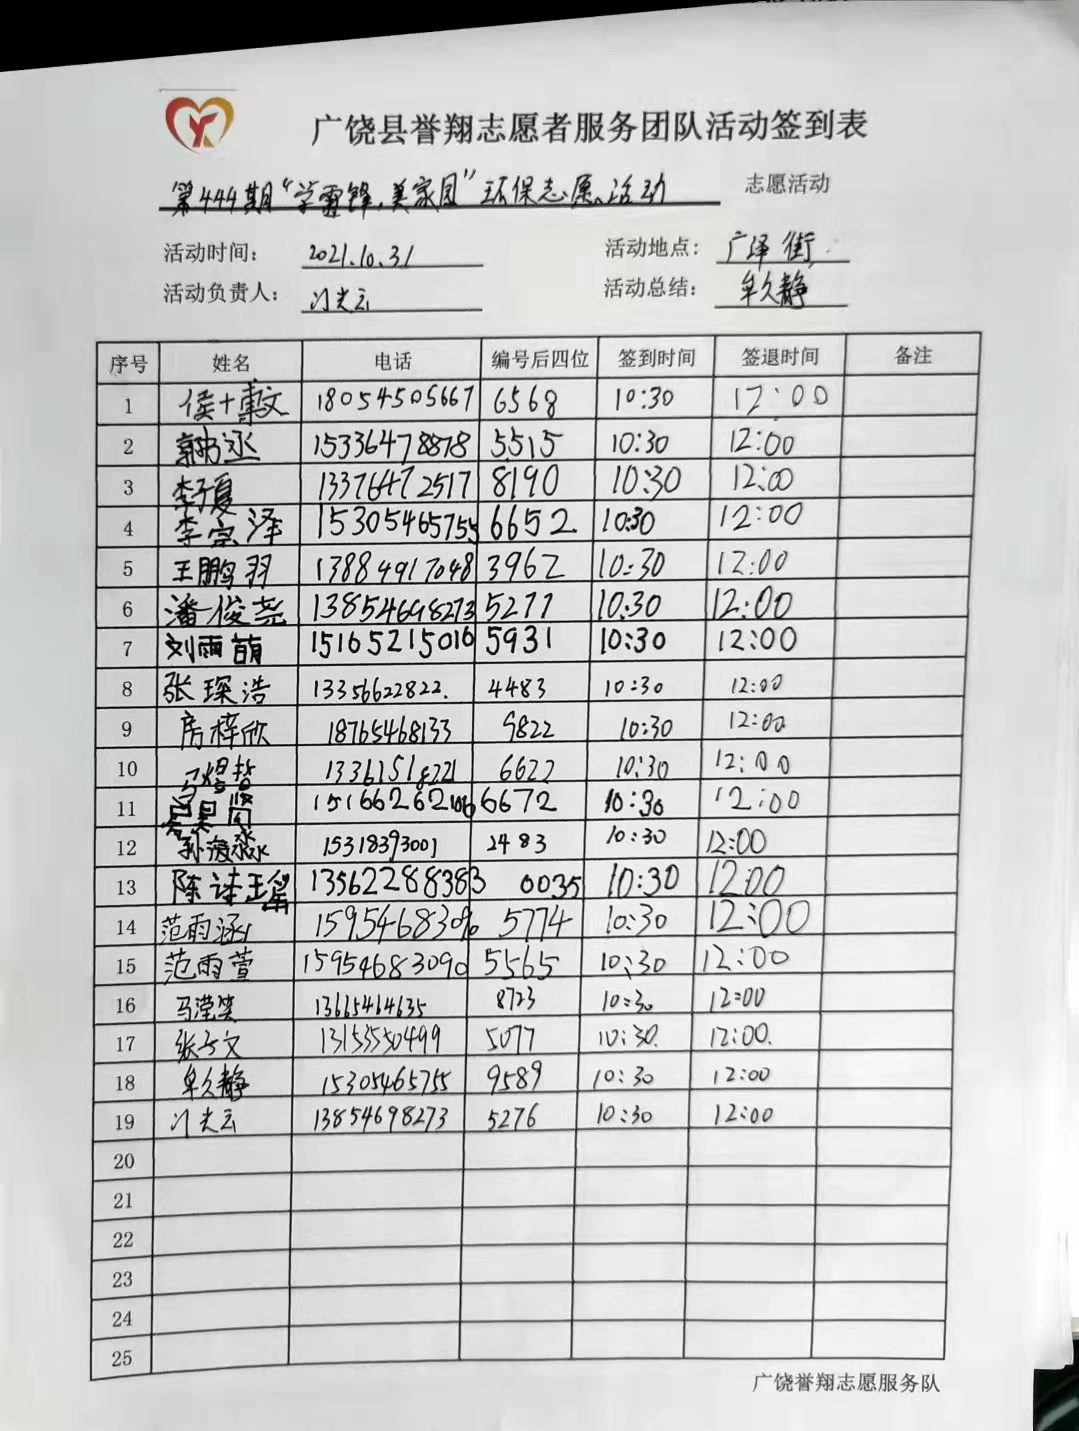 广饶县誉翔志愿者服务团队活动签到表
第444期“学雷锋,美家园”环保志愿活动 志愿活动
活动时间: 2021.10.31 活动地点: 广泽街
活动负责人: 门光云 活动总结: 牟久静
序号 姓名 电话 编号后四位 签到时间 签退时间 备注
1 18054505667 6568 10:30 12:00
2 15336478878 5515 10:30 12:00
3 李子夏 13376472517 8190 10:30 12:00
4 李宗泽 15305465755 6652 10:30 12:00
5 王鹏羽 13884917048 3962 10:30 12:00
6 潘俊尧 13854698273 5277 10:30 12:00
7 刘雨萌 15165215016 5931 10:30 12:00
8 张琛浩 13356622822. 4483 10:30 12:00
9 房梓欣 18765468133 9822 10:30 12:00
10 马熠哲 6622 10:30 12:00
11 6672 10:30 12:00
12 孙海淼 15318393001 2483 10:30 12:00
13 13562288383 0035 10:30 12:00
14 范雨涵 5774 10:30 12:00
15 范雨萱 15954683090 5565 10:30 12:00
16 马滢笑 13615464635 8723 10:30 12:00
17 张子文 13153550499 5077 10:30. 12:00.
18 牟久静 15305465755 9589 10:30 12:00
19 门光云 13854698273 5276 10:30 12:00
20
21
22
23
24
25
广饶誉翔志愿服务队